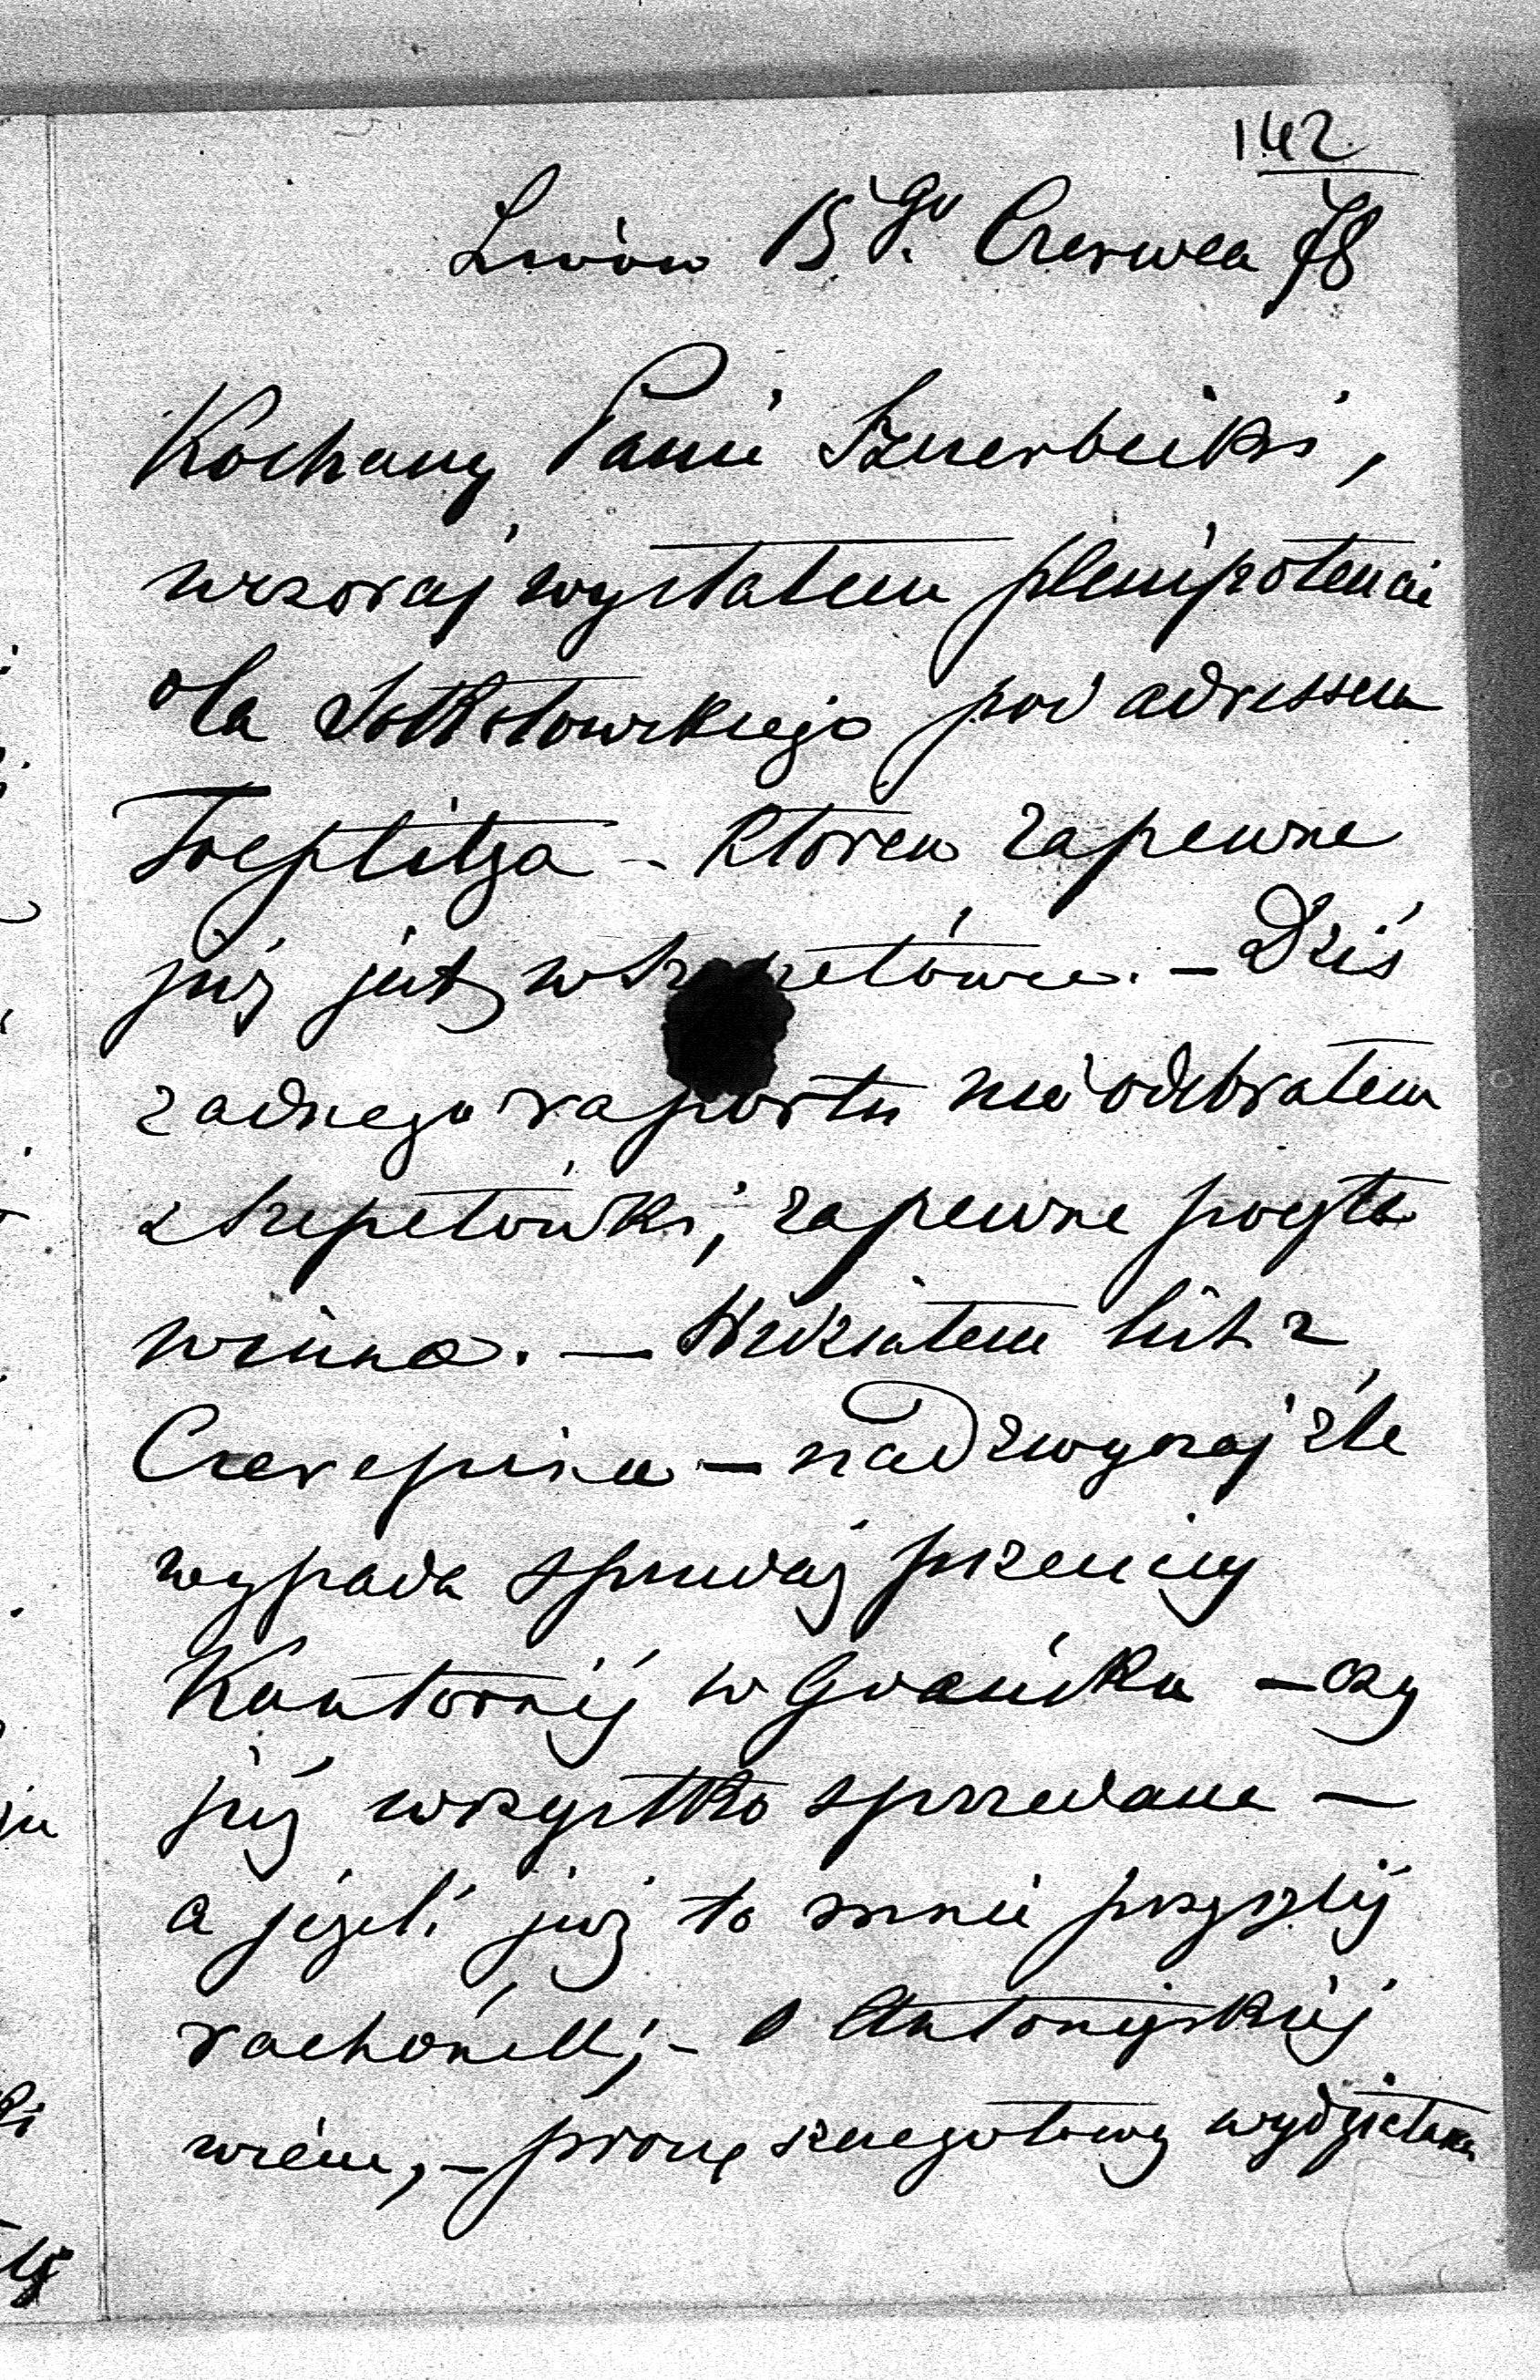 142
Lwów 15go Czerwca 78
Kochany Panie
wczoraj wysłałem plenipotencie
dla Sokołowskiego pod adressem
Toeplitza – którén zapewne
już jest w Sz petówce. – Dziś
żadnego raportu nie odebrałem
z Szepetówki, zapewne poczta
winna. – Widziałem list z
Czerepina – nadzwyczaj źle
wypada sprzedaż pszenicy
Kantornij w Gdańsku – czy
już wszystko sprzedane –
a jeżeli już to mnie przyszlij
rachónek; – O Antonijskiéj
wiém, – proszę szczegółowy